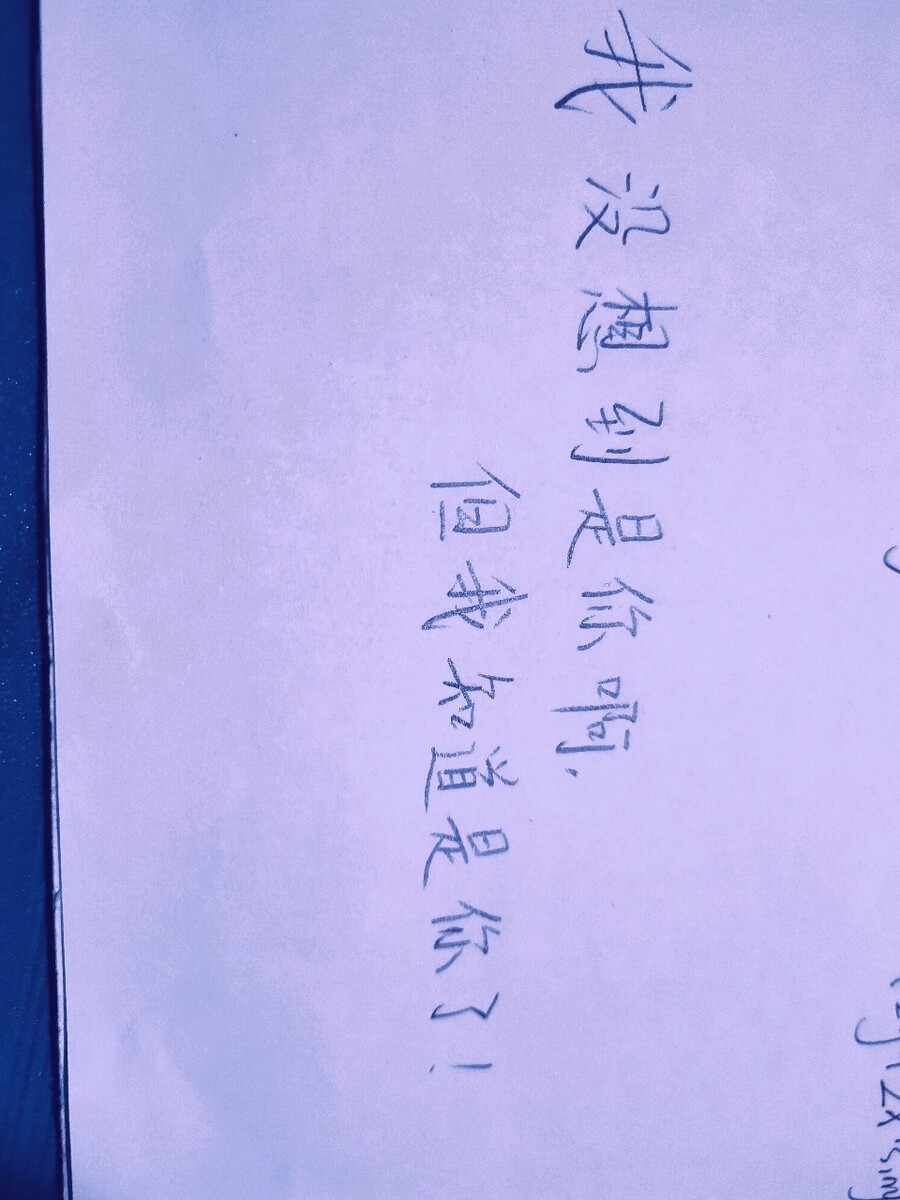 我没想到是你啊.
但我知道是你了!